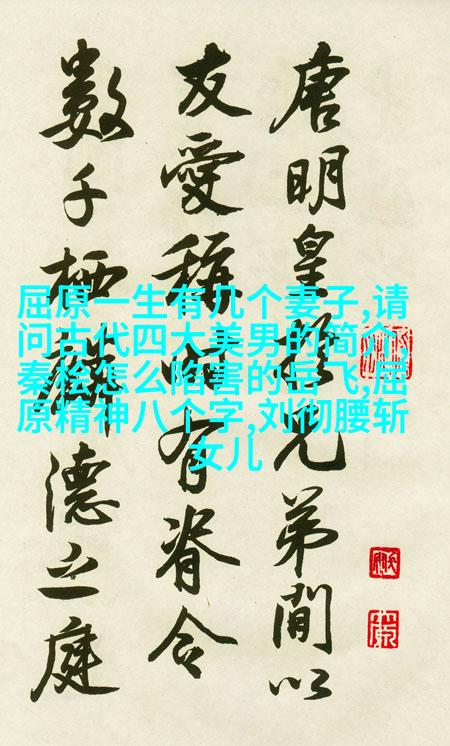 唐明皇於兄弟間以
友愛稱時有脊令
數千栖麟德之庭
屈原一生有几个妻子,请
问古代四大美男的简介,
秦桧怎么陷害的岳飞,屈
原精神八个字,刘彻腰斩
女儿